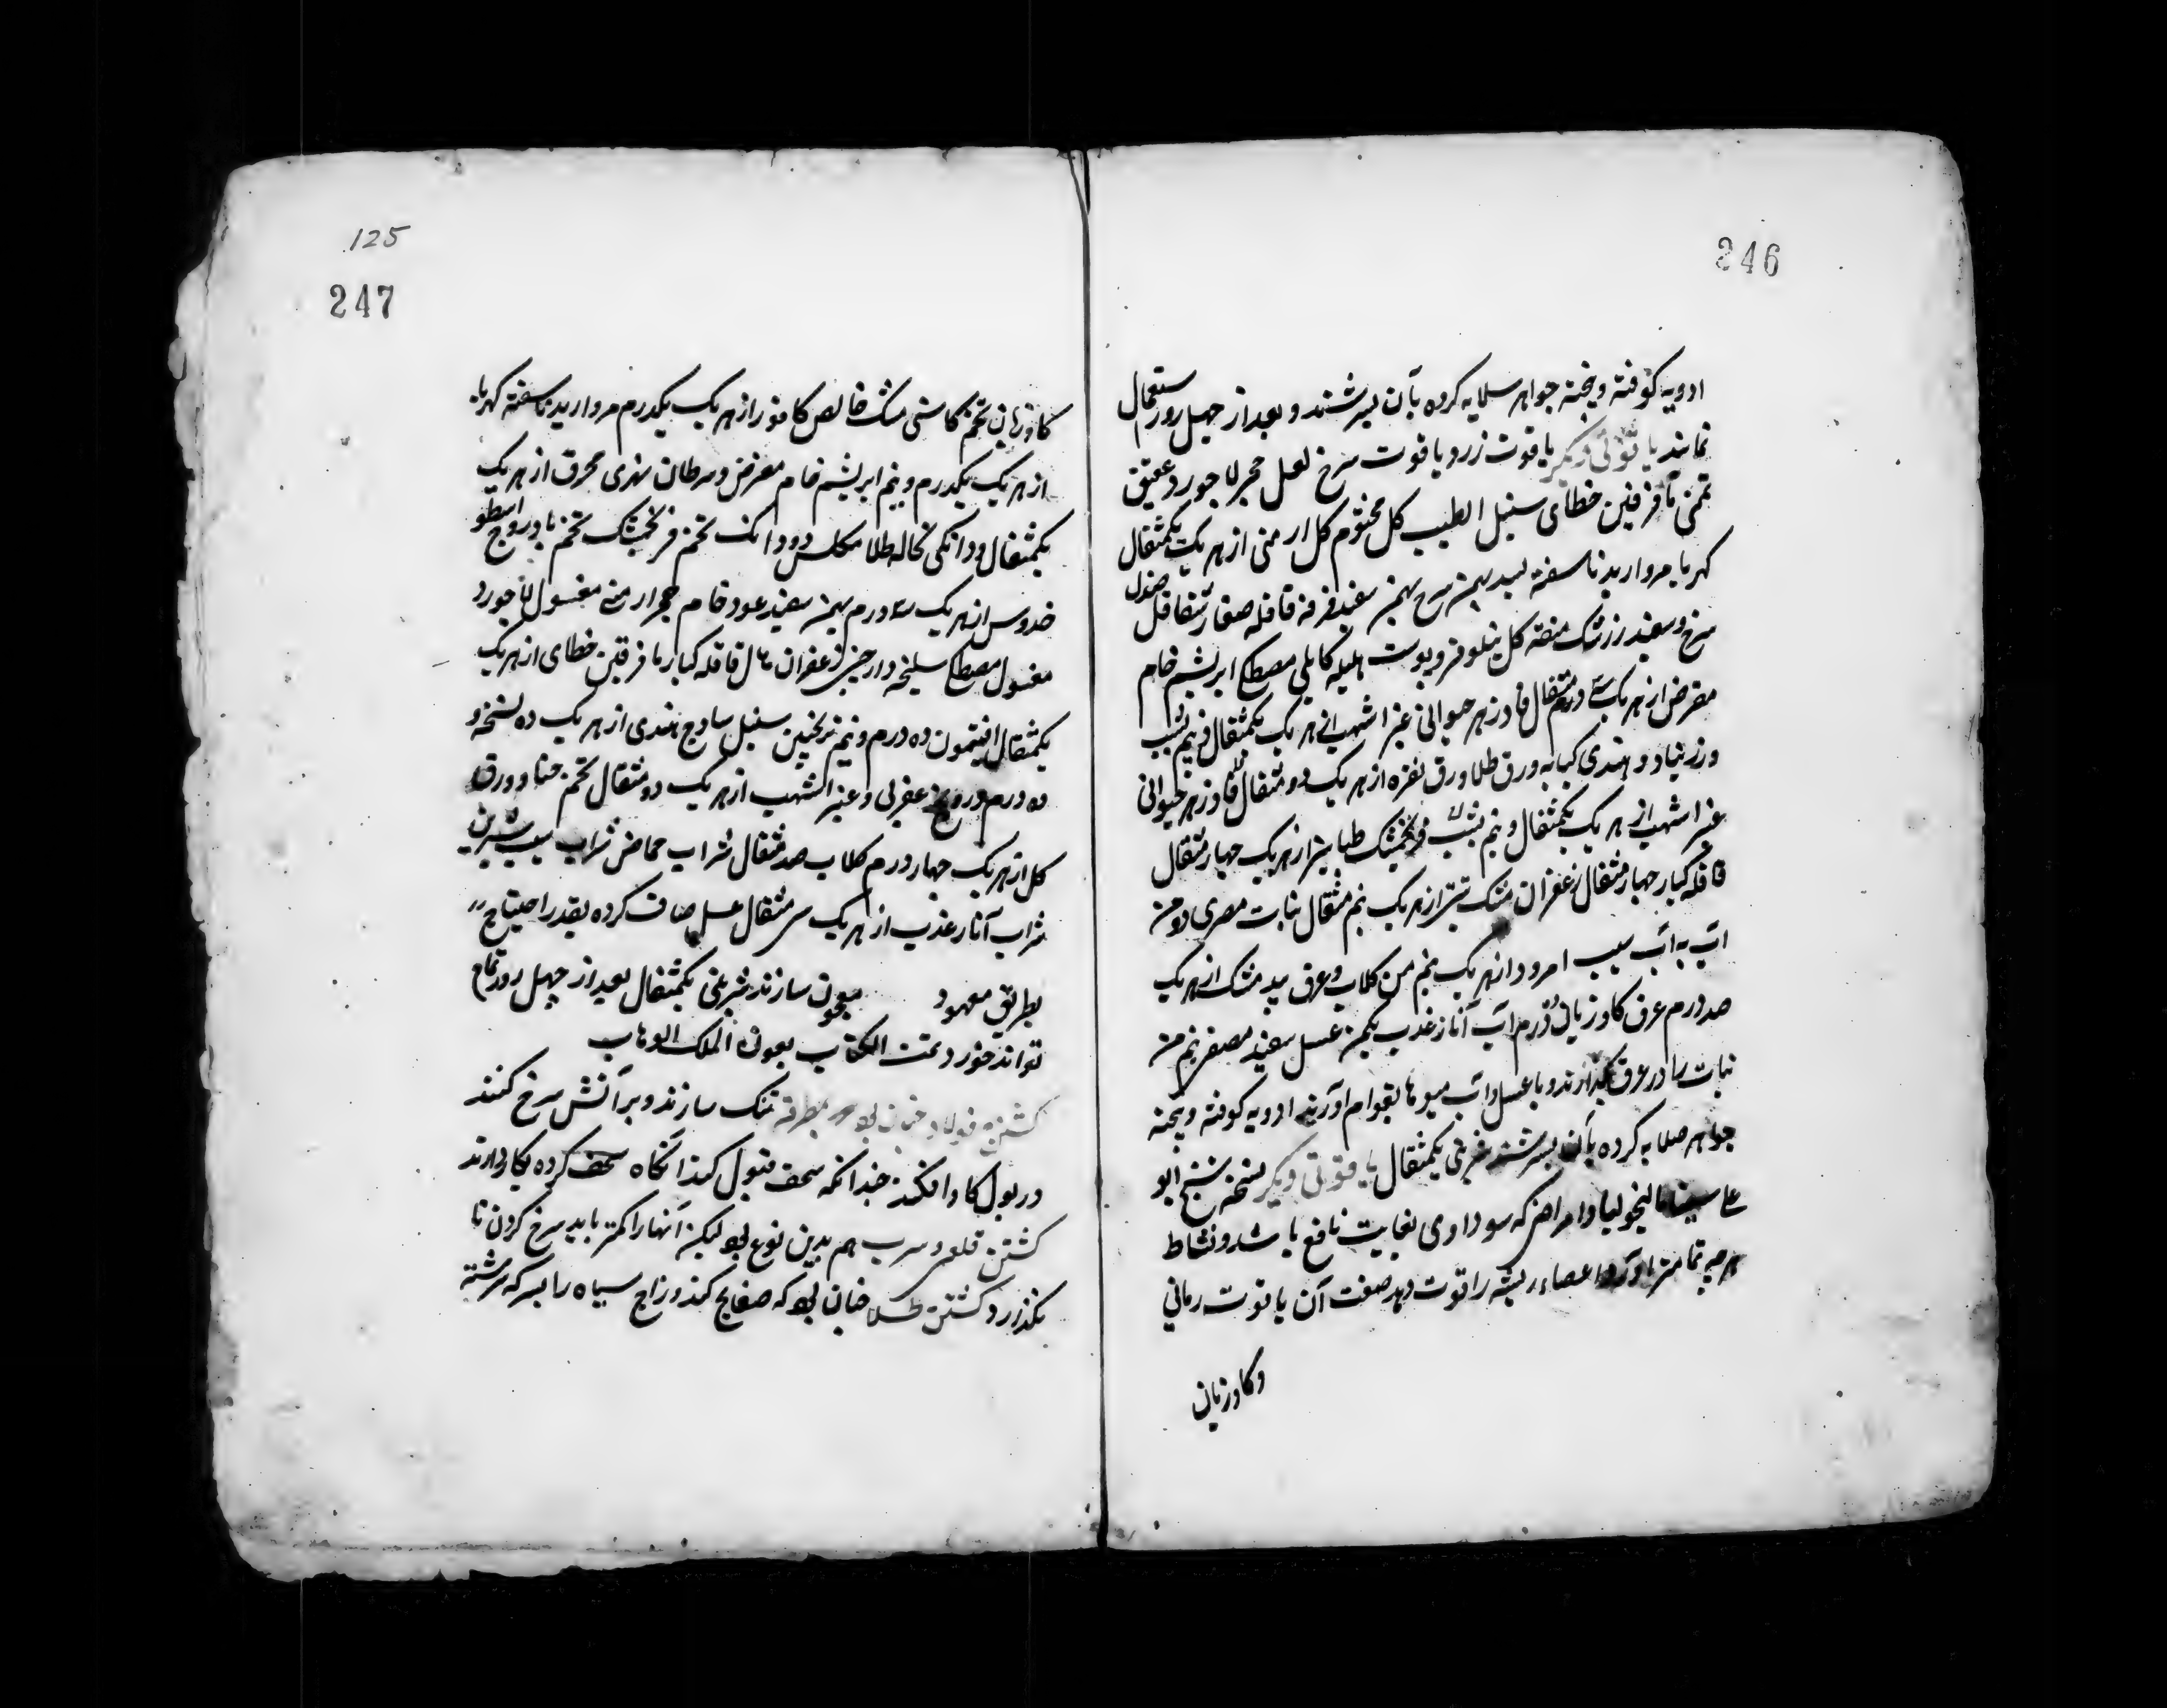 246
ادویه کوفته و بیخته جواهر سلایه کرده بآن بسرشند و بعد از چهل روز استعمال
نمایند یاقوتی دیگر یاقوت زرد یاقوت سرخ لعل حجر لاجورد عقیق
یمنی مافرفین خطای سنبل الطیب کل مختوم کل ارمنی از هر یک یکمثقال
کهربا مروارید ناسفته بسد بهمن سرخ بهمن سفید فرفه قاقله صغار شقاقل صندل
سرخ و سفید زرشک منقه کل نیلوفر و پوست هلیله کابلی مصطکی ابریشم خام
مقرض از هر یک سه درم مثقال فادزهر حیوانی عنبر اشهب از هر یک یکمثقال و نیم
ورزنباد و هندی کبابه ورق طلا ورق نقره از هر یک دو مثقال فادزهر حیوانی
عنبر اشهب از هر یک یکمثقال و نیم فرنجمشک طباشیر از هر یک چهار مثقال
قاقله کبار چهار مثقال زعفران مشک تبتی از هر یک نیم مثقال نبات مصری دو من
آب به آب سیب امرود از هر یک نیم من کلاب و عرق بید مشک از هر یک
صد درم عرق کاوزبان آب انار عذب یکمن عسل سفید مصفی نیم من
نبات را در عرق بگدازند و با عسل و آب میوها بقوام آورند ادویه کوفته و بیخته
جواهر صلابه کرده بآن بسرشند شربتی یکمثقال یاقوتی دیگر نسخه شیخ ابو
علی سینا مالیخولیا و امراض که سوداوی بغایت نافع باشد و نشاط
هر چه تمامتر آورد و اعضاء رئیسه را قوت دهد صفت آن یاقوت رمانی
و کاوزبان
125
247
کاوزبان تخم کاسنی مشک خالص کافور از هر یک یکدرم مروارید ناسفته کهربا
از هر یک یکدرم و نیم ابریشم خام مقرض و سرطان نهری محرق از هر یک
یکمثقال و دانکی نخاله طلا مکلس دو دانک تخم فرنجمشک تخم بادروج اسطو
خدوس از هر یک سه درم بهمن سفید عود خام حجر ارمنی مغسول لاجورد
مغسول مصطکی سلیخه دارچینی زعفران هال قاقله کبار مافرفین خطای از هر یک
یکمثقال افتیمون ده درم و نیم ترنجبین سنبل سادج هندی از هر یک ده نسخه و
ده درم درونج عقربی و عنبر اشهب از هر یک دو مثقال تخم حنا و ورق
کل از هر یک چهار درم کلاب صد مثقال شراب حماض شراب سیب شیرین
شراب انار عذب از هر یک سی مثقال عسل صاف کرده بقدر احتیاج
بطریق معهود معجون سازند شربتی یکمثقال بعد از چهل روز تمام
تواند خورد تمت الکتاب بعون الملک الوهاب
کشتن فولاد چنان بود که بمطرقه تنک سازند و بر آتش سرخ کنند
در بول کاو افکند چندانکه سحق قبول کند آنگاه سحق کرده بکار دارند
کشتن قلعی و سرب هم بدین نوع بود لیکن آنها را کمتر باید سرخ کردن تا
نکذارد کشتن طلا چنان بود که صفایح کند و زاج سیاه را بسرکه سرشته